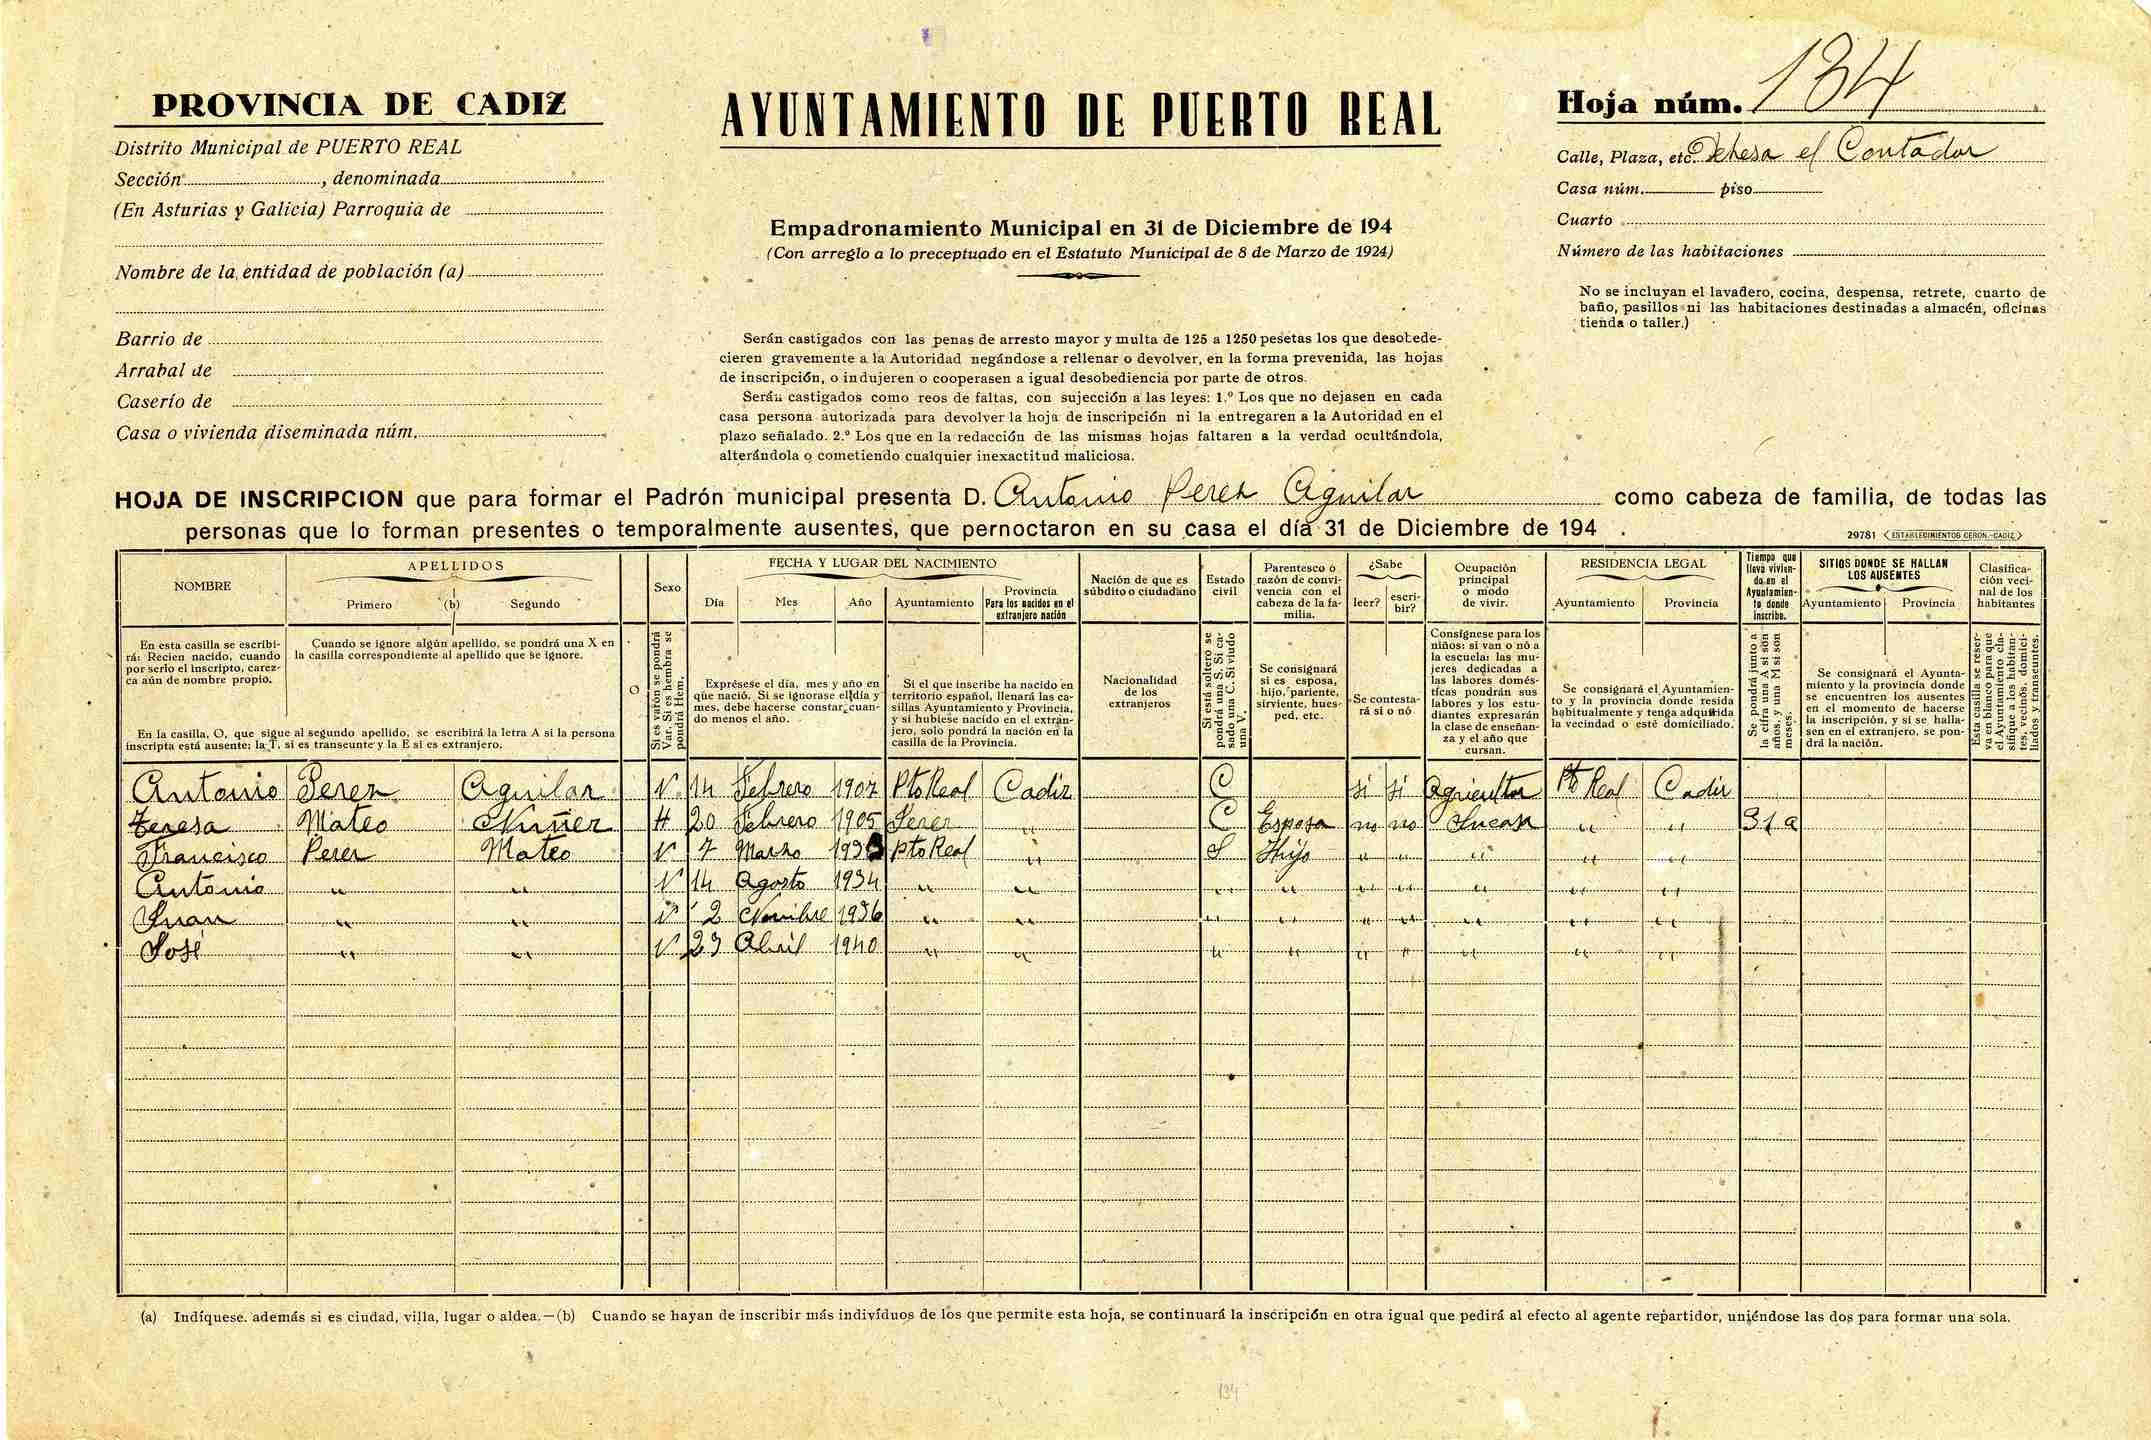 PROVINCIA DE CADIZ
Distrito Municipal de PUERTO REAL
Sección, denominada
(En Asturias y Galicia) Parroquia de
Nombre de la entidad de población (a)
Barrio de
Arrabal de
Caserío de
Casa o vivienda diseminada núm.
AYUNTAMIENTO DE PUERTO REAL
Empadronamiento Municipal en 31 de Diciembre de 194
(Con arreglo a lo preceptuado en el Estatuto Municipal de 8 de Marzo de 1924)
Serán castigados con las penas de arresto mayor y multa de 125 a 1250 pesetas los que desobede-
cieren gravemente a la Autoridad negándose a rellenar o devolver, en la forma prevenida, las hojas
de inscripción, o indujeren o cooperasen a igual desobediencia por parte de otros.
Serán castigados como reos de faltas, con sujección a las leyes: 1.º Los que no dejasen en cada
casa persona autorizada para devolver la hoja de inscripción ni la entregaren a la Autoridad en el
plazo señalado. 2.º Los que en la redacción de las mismas hojas faltaren a la verdad ocultándola,
alterándola o cometiendo cualquier inexactitud maliciosa.
Hoja núm. 134
Calle, Plaza, etc. Dehesa el Contador
Casa núm. piso
Cuarto
Número de las habitaciones
No se incluyan el lavadero, cocina, despensa, retrete, cuarto de
baño, pasillos ni las habitaciones destinadas a almacén, oficinas
tienda o taller.)
HOJA DE INSCRIPCION que para formar el Padrón municipal presenta D. Antonio Perez Aguilar como cabeza de familia, de todas las
personas que lo forman presentes o temporalmente ausentes, que pernoctaron en su casa el día 31 de Diciembre de 194 .
29781 ESTABLECIMIENTOS CERON.-CADIZ
NOMBRE
APELLIDOS
Primero (b) Segundo
O
Sexo
FECHA Y LUGAR DEL NACIMIENTO
Día Mes Año Ayuntamiento
Provincia
Para los nacidos en el
extranjero nación
Nación de que es
súbdito o ciudadano
Estado
civil
Parentesco o
razón de convi-
vencia con el
cabeza de la fa-
milia.
¿Sabe
leer? escri-
bir?
Ocupación
principal
o modo
de vivir.
RESIDENCIA LEGAL
Ayuntamiento Provincia
Tiempo que
lleva vivien-
do en el
Ayuntamien-
to donde
inscribe.
SITIOS DONDE SE HALLAN
LOS AUSENTES
Ayuntamiento Provincia
Clasifica-
ción veci-
nal de los
habitantes
En esta casilla se escribi-
rá: Recien nacido, cuando
por serlo el inscripto, carez-
ca aún de nombre propio.
Cuando se ignore algún apellido, se pondrá una X en
la casilla correspondiente al apellido que se ignore.
En la casilla, O, que sigue al segundo apellido, se escribirá la letra A si la persona
inscripta está ausente; la T, si es transeunte y la E si es extranjero.
Si es varón se pondrá
Var. Si es hembra se
pondrá Hem.
Exprésese el día, mes y año en
que nació. Si se ignorase el día y
mes, debe hacerse constar cuan-
do menos el año.
Si el que inscribe ha nacido en
territorio español, llenará las ca-
sillas Ayuntamiento y Provincia,
y si hubiese nacido en el extran-
jero, solo pondrá la nación en la
casilla de la Provincia.
Nacionalidad
de los
extranjeros
Si está soltero se
pondrá una S. Si ca-
sado una C. Si viudo
una V.
Se consignará
si es esposa,
hijo, pariente,
sirviente, hues-
ped, etc.
Se contesta-
rá si o nó
Consígnese para los
niños: si van o nó a
la escuela: las mu-
jeres dedicadas a
las labores domés-
ticas pondrán sus
labores y los estu-
diantes expresarán
la clase de enseñan-
za y el año que
cursan.
Se consignará el Ayuntamien-
to y la provincia donde resida
habitualmente y tenga adquirida
la vecindad o esté domiciliado.
Se pondrá junto a
la cifra una A si són
años, y una M si son
meses.
Se consignará el Ayunta-
miento y la provincia donde
se encuentren los ausentes
en el momento de hacerse
la inscripción, y si se halla-
sen en el extranjero, se pon-
drá la nación.
Esta casilla se reser-
va en blanco para que
el Ayuntamiento cla-
sifique a los habitan-
tes, vecinos, domici-
liados y transeuntes.
Antonio Perez Aguilar V 14 Febrero 1907 Pto Real Cadiz C si si Agricultor Pto Real Cadiz
Teresa Mateo Nuñez H 20 Febrero 1905 Jerez " C Esposa no no Sucasa " " 31 a
Francisco Perez Mateo V 7 Marzo 1933 Pto Real " S Hijo " " " " "
Antonio " " V 14 Agosto 1934 " " " " " " " " "
Juan " " V 2 Novibre 1936 " " " " " " " " "
José " " V 23 Abril 1940 " " " " " " " " "
(a) Indíquese. además si es ciudad, villa, lugar o aldea.—(b) Cuando se hayan de inscribir más indivíduos de los que permite esta hoja, se continuará la inscripción en otra igual que pedirá al efecto al agente repartidor, uniéndose las dos para formar una sola.
134